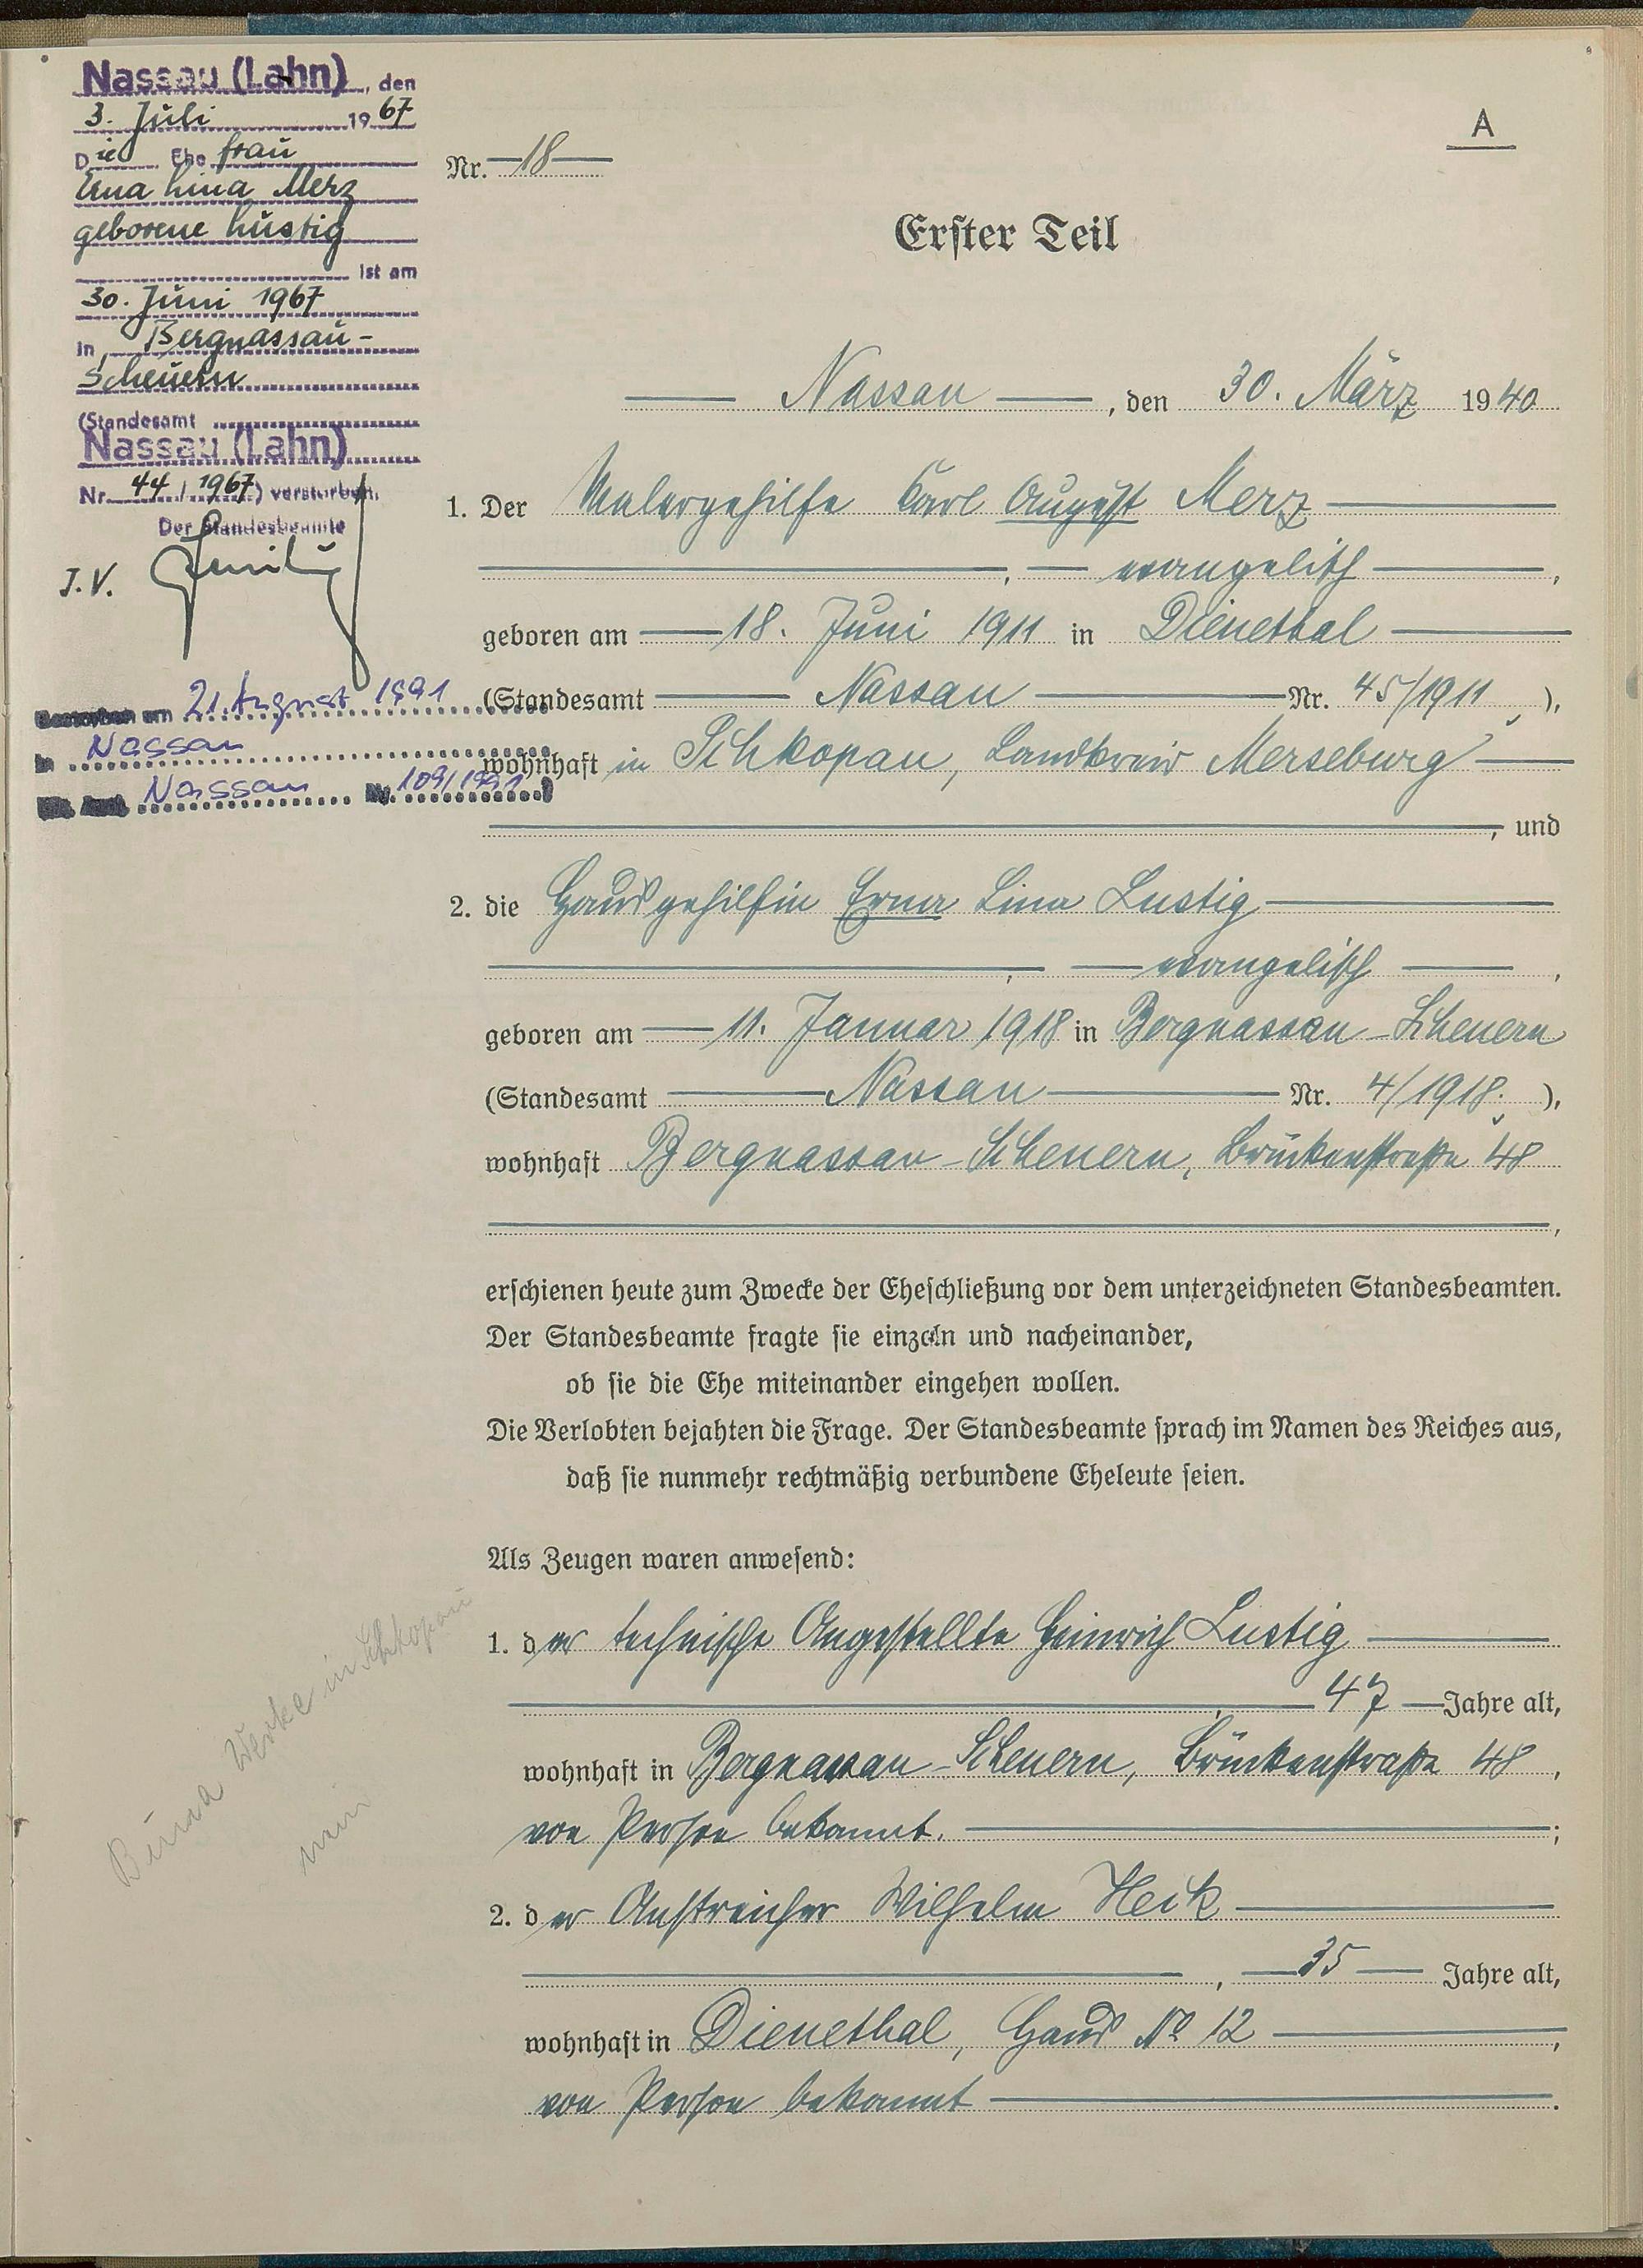 Nassau (Lahn), den
3. Juli 1967
Die Ehefrau
Erna Lina Merz
geborene Lustig
ist am
30. Juni 1967
in Bergnassau-
Scheuern
(Standesamt
Nassau (Lahn)
Nr. 44 / 1967) verstorben.
Der Standesbeamte
J.V.
Gestorben am 21. August 1991
in Nassau
Nassau Nr. 109/1991)
Buna Werke in Schkopau
A
Nr. 18
Erster Teil
Nassau, den 30. März 1940
1. Der Malergehilfe Karl August Merz
, evangelisch,
geboren am 18. Juni 1911 in Dienethal
(Standesamt Nassau Nr. 45/1911),
wohnhaft in Schkopau, Landkreis Merseburg
, und
2. die Hausgehilfin Erna Lina Lustig
, evangelisch,
geboren am 11. Januar 1918 in Bergnassau-Scheuern
(Standesamt Nassau Nr. 4/1918.),
wohnhaft Bergnassau-Scheuern, Brückenstraße 48
,
erschienen heute zum Zwecke der Eheschließung vor dem unterzeichneten Standesbeamten.
Der Standesbeamte fragte sie einzeln und nacheinander,
ob sie die Ehe miteinander eingehen wollen.
Die Verlobten bejahten die Frage. Der Standesbeamte sprach im Namen des Reiches aus,
daß sie nunmehr rechtmäßig verbundene Eheleute seien.
Als Zeugen waren anwesend:
1. der technische Angestellte Heinrich Lustig
, 47 Jahre alt,
wohnhaft in Bergnassau-Scheuern, Brückenstraße 48,
von Person bekannt.;
2. der Anstreicher Wilhelm Heck
, 35 Jahre alt,
wohnhaft in Dienethal, Haus No 12,
von Person bekannt.